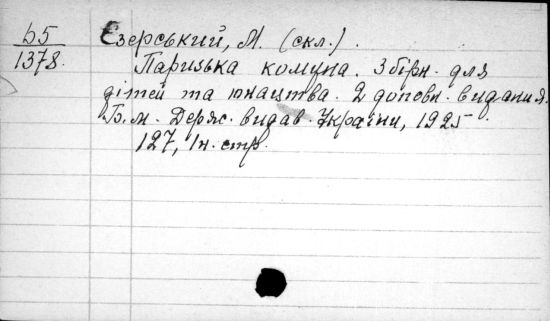 Б5
1378.
Єзерський, М. (скл.).
Паризька комуна. Збірн. для
дітей та юнацтва. 2 доповн. видання.
Б. м. Держ. видав. України, 1925
127, 1н. стр.